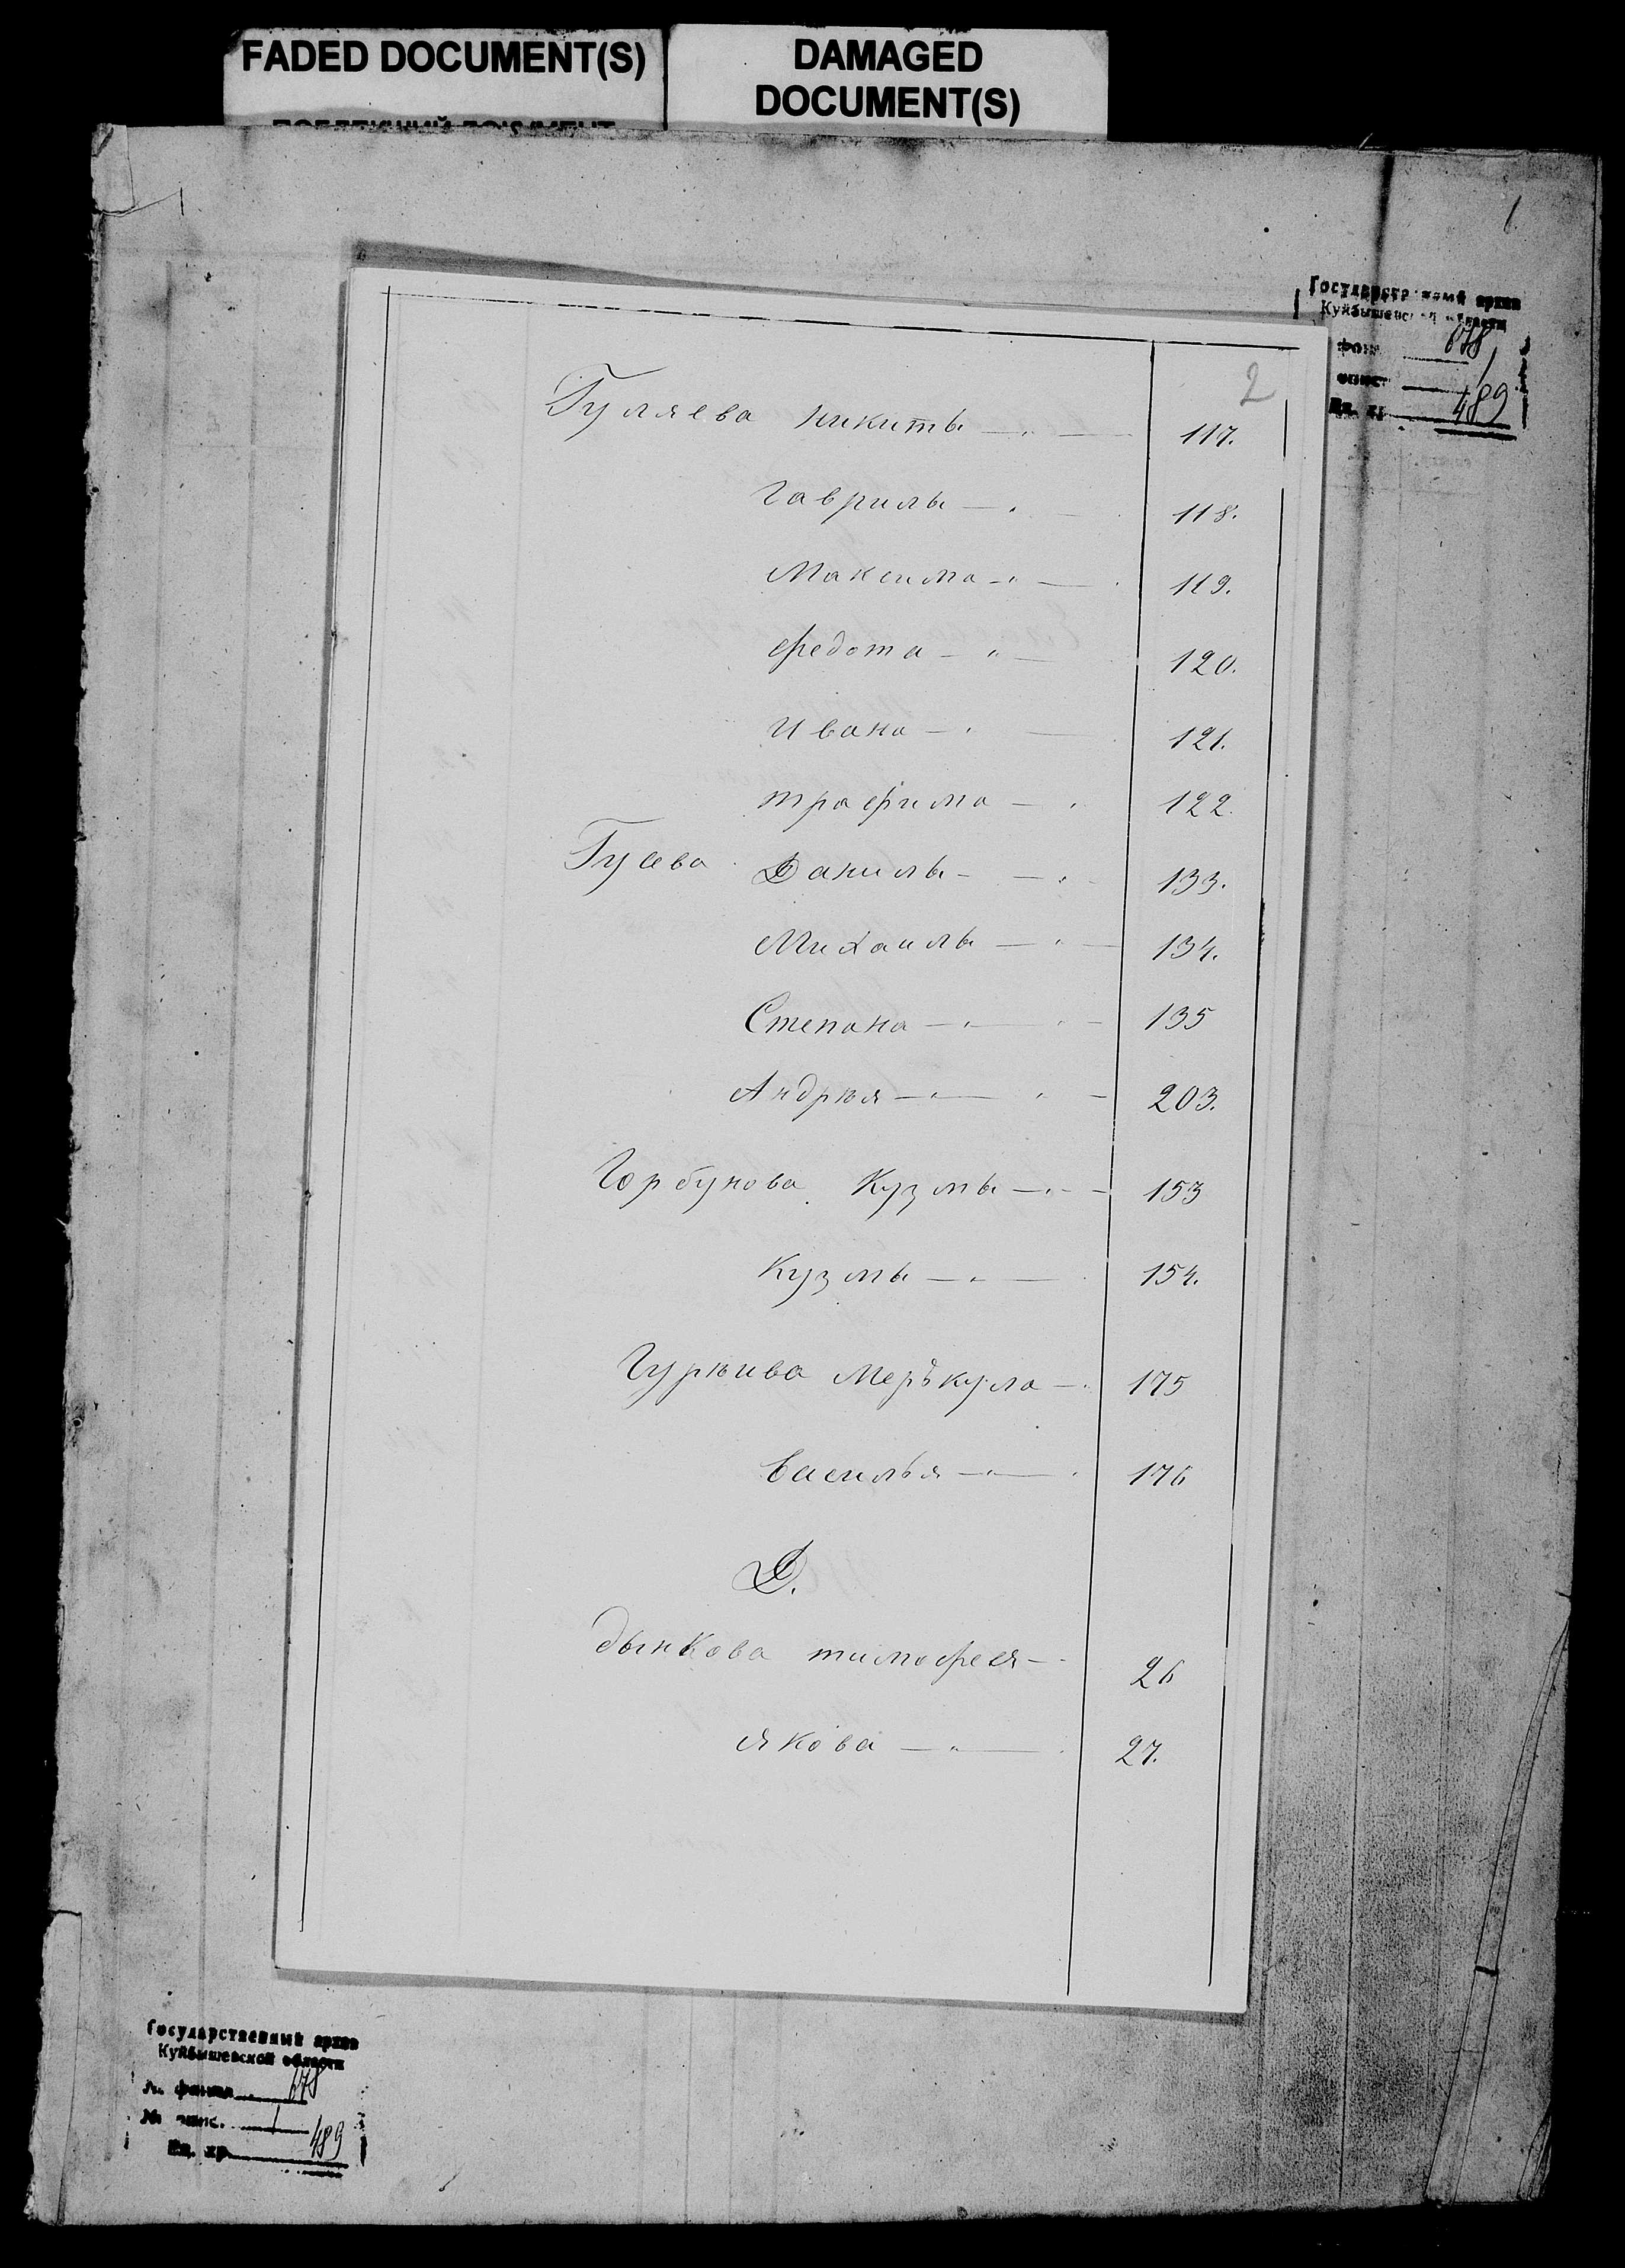 FADED DOCUMENT(S)
DAMAGED
DOCUMENT(S)
1
Государственный архив
Куйбышевской области
678
1
489
2
Гуляева Никиты — 117.
Гаврилы — 118.
Максима — 119.
Федота — 120.
Ивана — 121.
Трафима — 122.
Гусева Данилы — 133.
Михаилы — 134.
Степана — 135
Андрѣя — 203.
Горбунова Кузмы — 153
Кузмы — 154.
Гурѣива Меръкула — 175
Василья — 176
Д.
дынкова тимофея — 26
якова — 27.
Государственный архив
Куйбышевской области
№ фонда 678
№ опис. 1
Ед. хр. 489